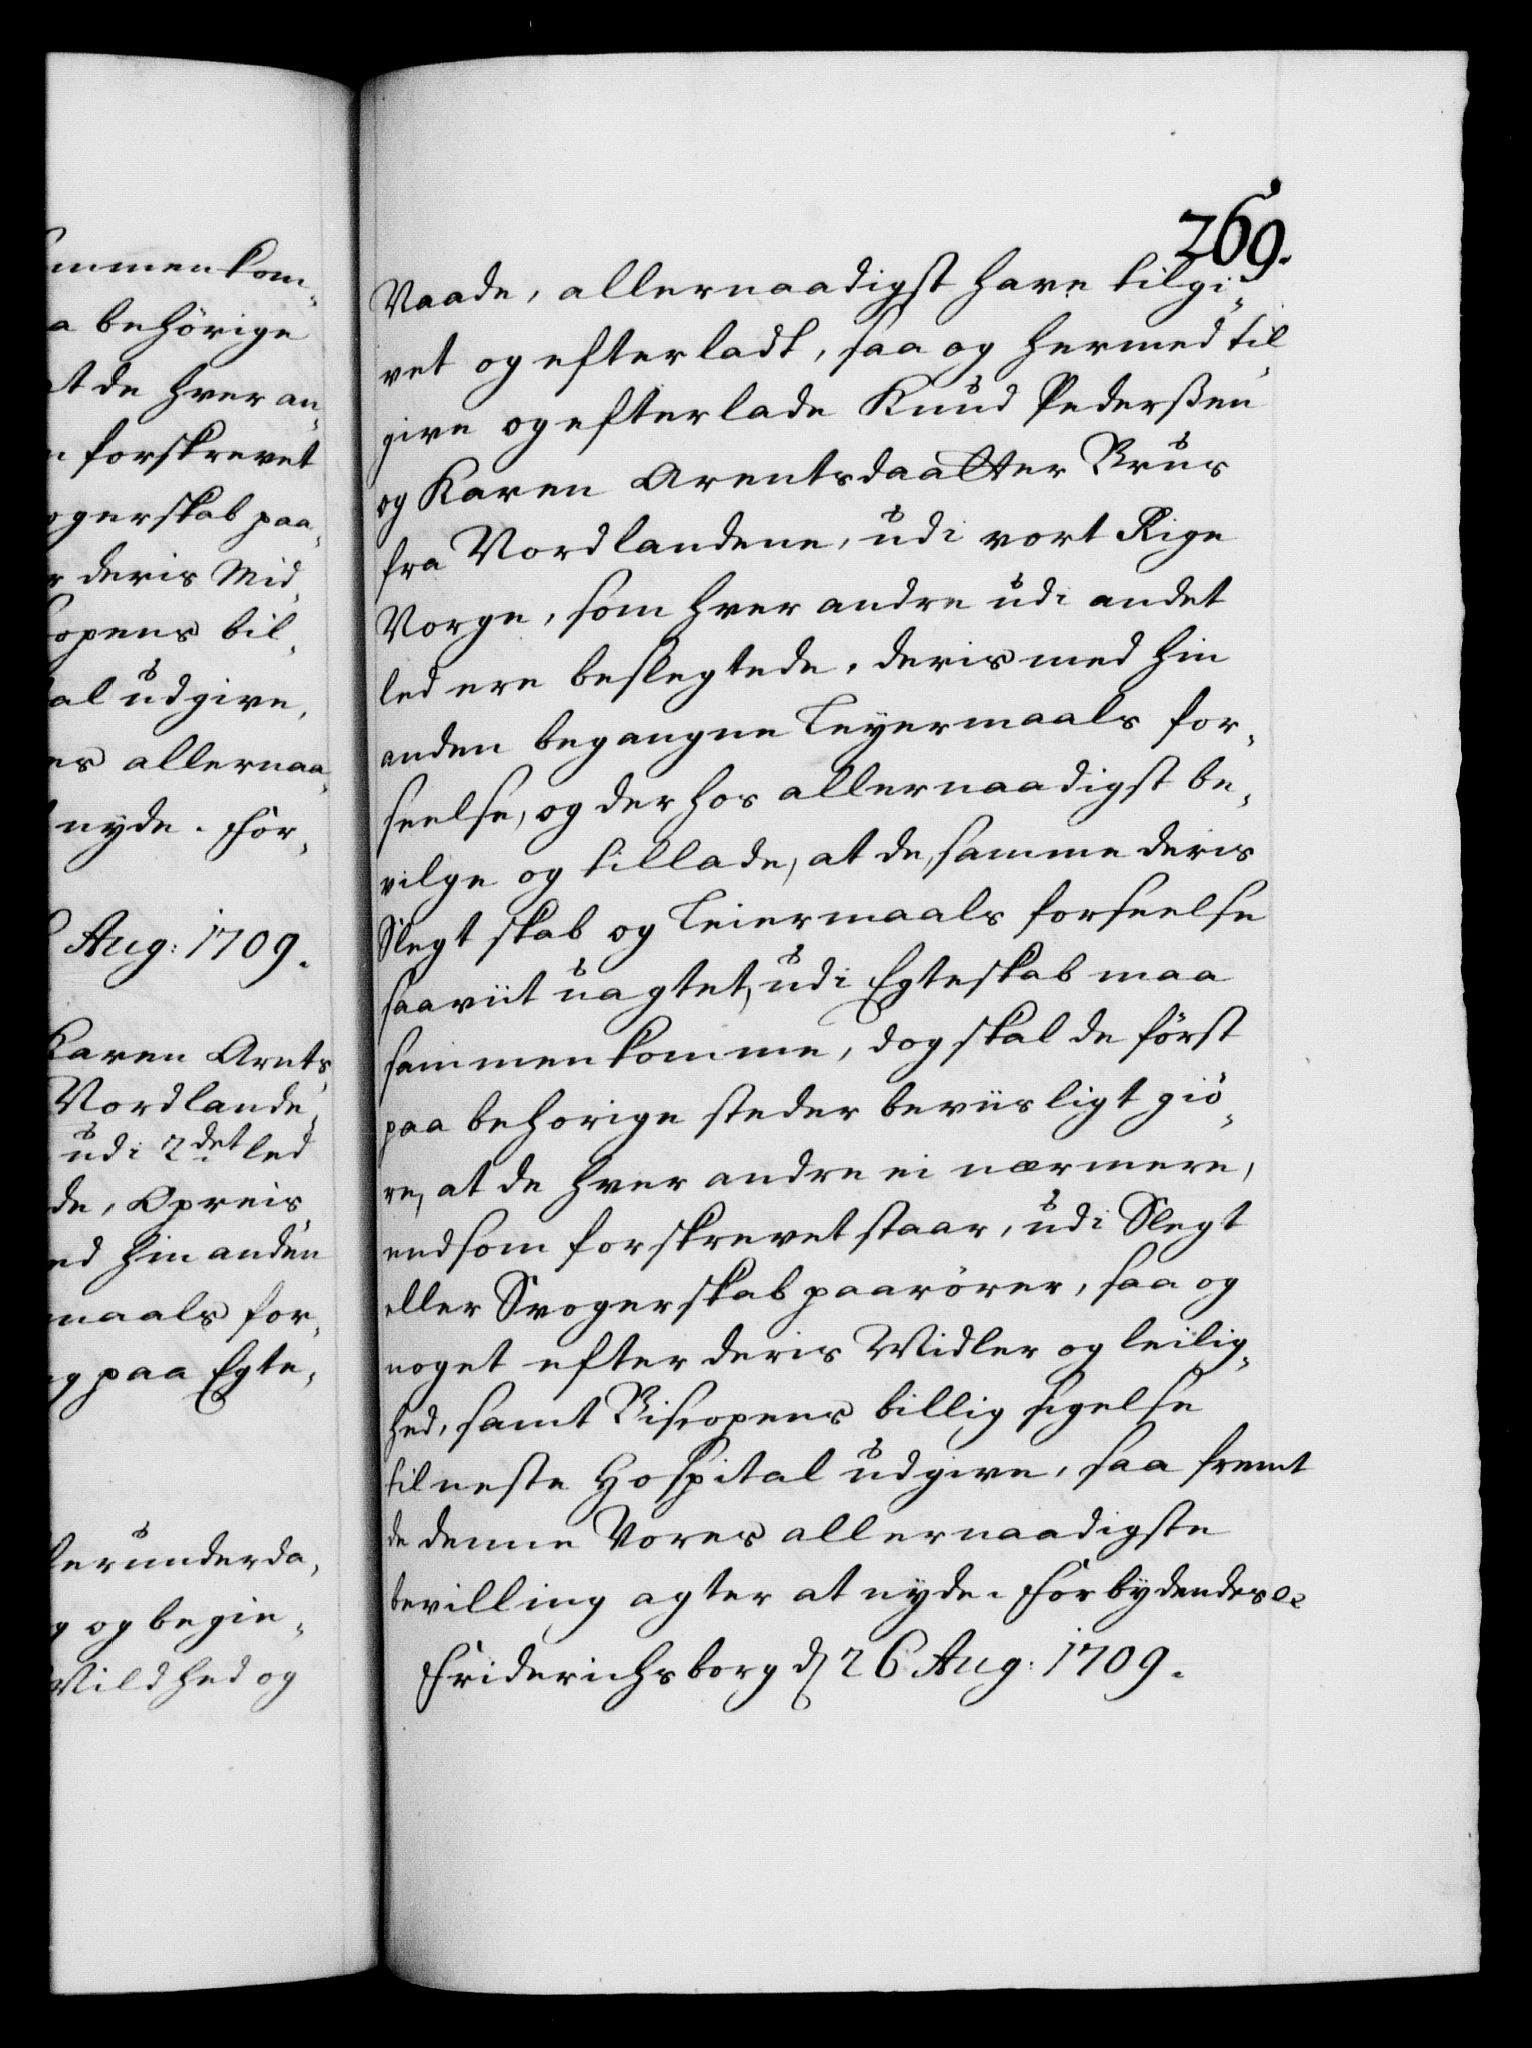 ammenkom„
a behörige
at de hver an„
n forskrevet
ogerskab paa„
r deris Mid„
opens bil„
al udgive,
es allernaa„
nyde. For„
Aug: 1709.
Karen Arnts„
Nordlande„
udi 2det led
de, Opreis„
ed hin anden
maals for„
g paa Egte„
lerunderda„
g og begie„
Mildhed og
269.
Naade, allernaadigst have tilgi„
vet og efterladt, saa og hermed til„
give og efterlade Knud Pederßen
og Karen Arentsdaatter Brus
fra Nordlandene, udi vort Rige
Norge, som hver andre udi andet
led ere beslegtede, deris med hin
anden begangne Leyermaals for„
seelse, og der hos allernaadigst be„
vilge og tillade, at de, samme deris
Slegt skab og Leiermaals forseelse
saaviit uagtet, udi Egteskab maa
sammenkomme, dog skal de först
paa behorige steder beviisligt giö„
re, at de hver andre ei nærmere,
end som forskrevet staar, udi Slegt
eller Svogerskab paarörer, saa og
noget efter deris Midler og leilig„
hed, samt Biscopens billig sigelse
til neste Hospital udgive, saa fremt
de denne Vores allernaadigste
bevilling agter at nyde. Forbydendes &c
Friderichsborg d 26 Aug: 1709.